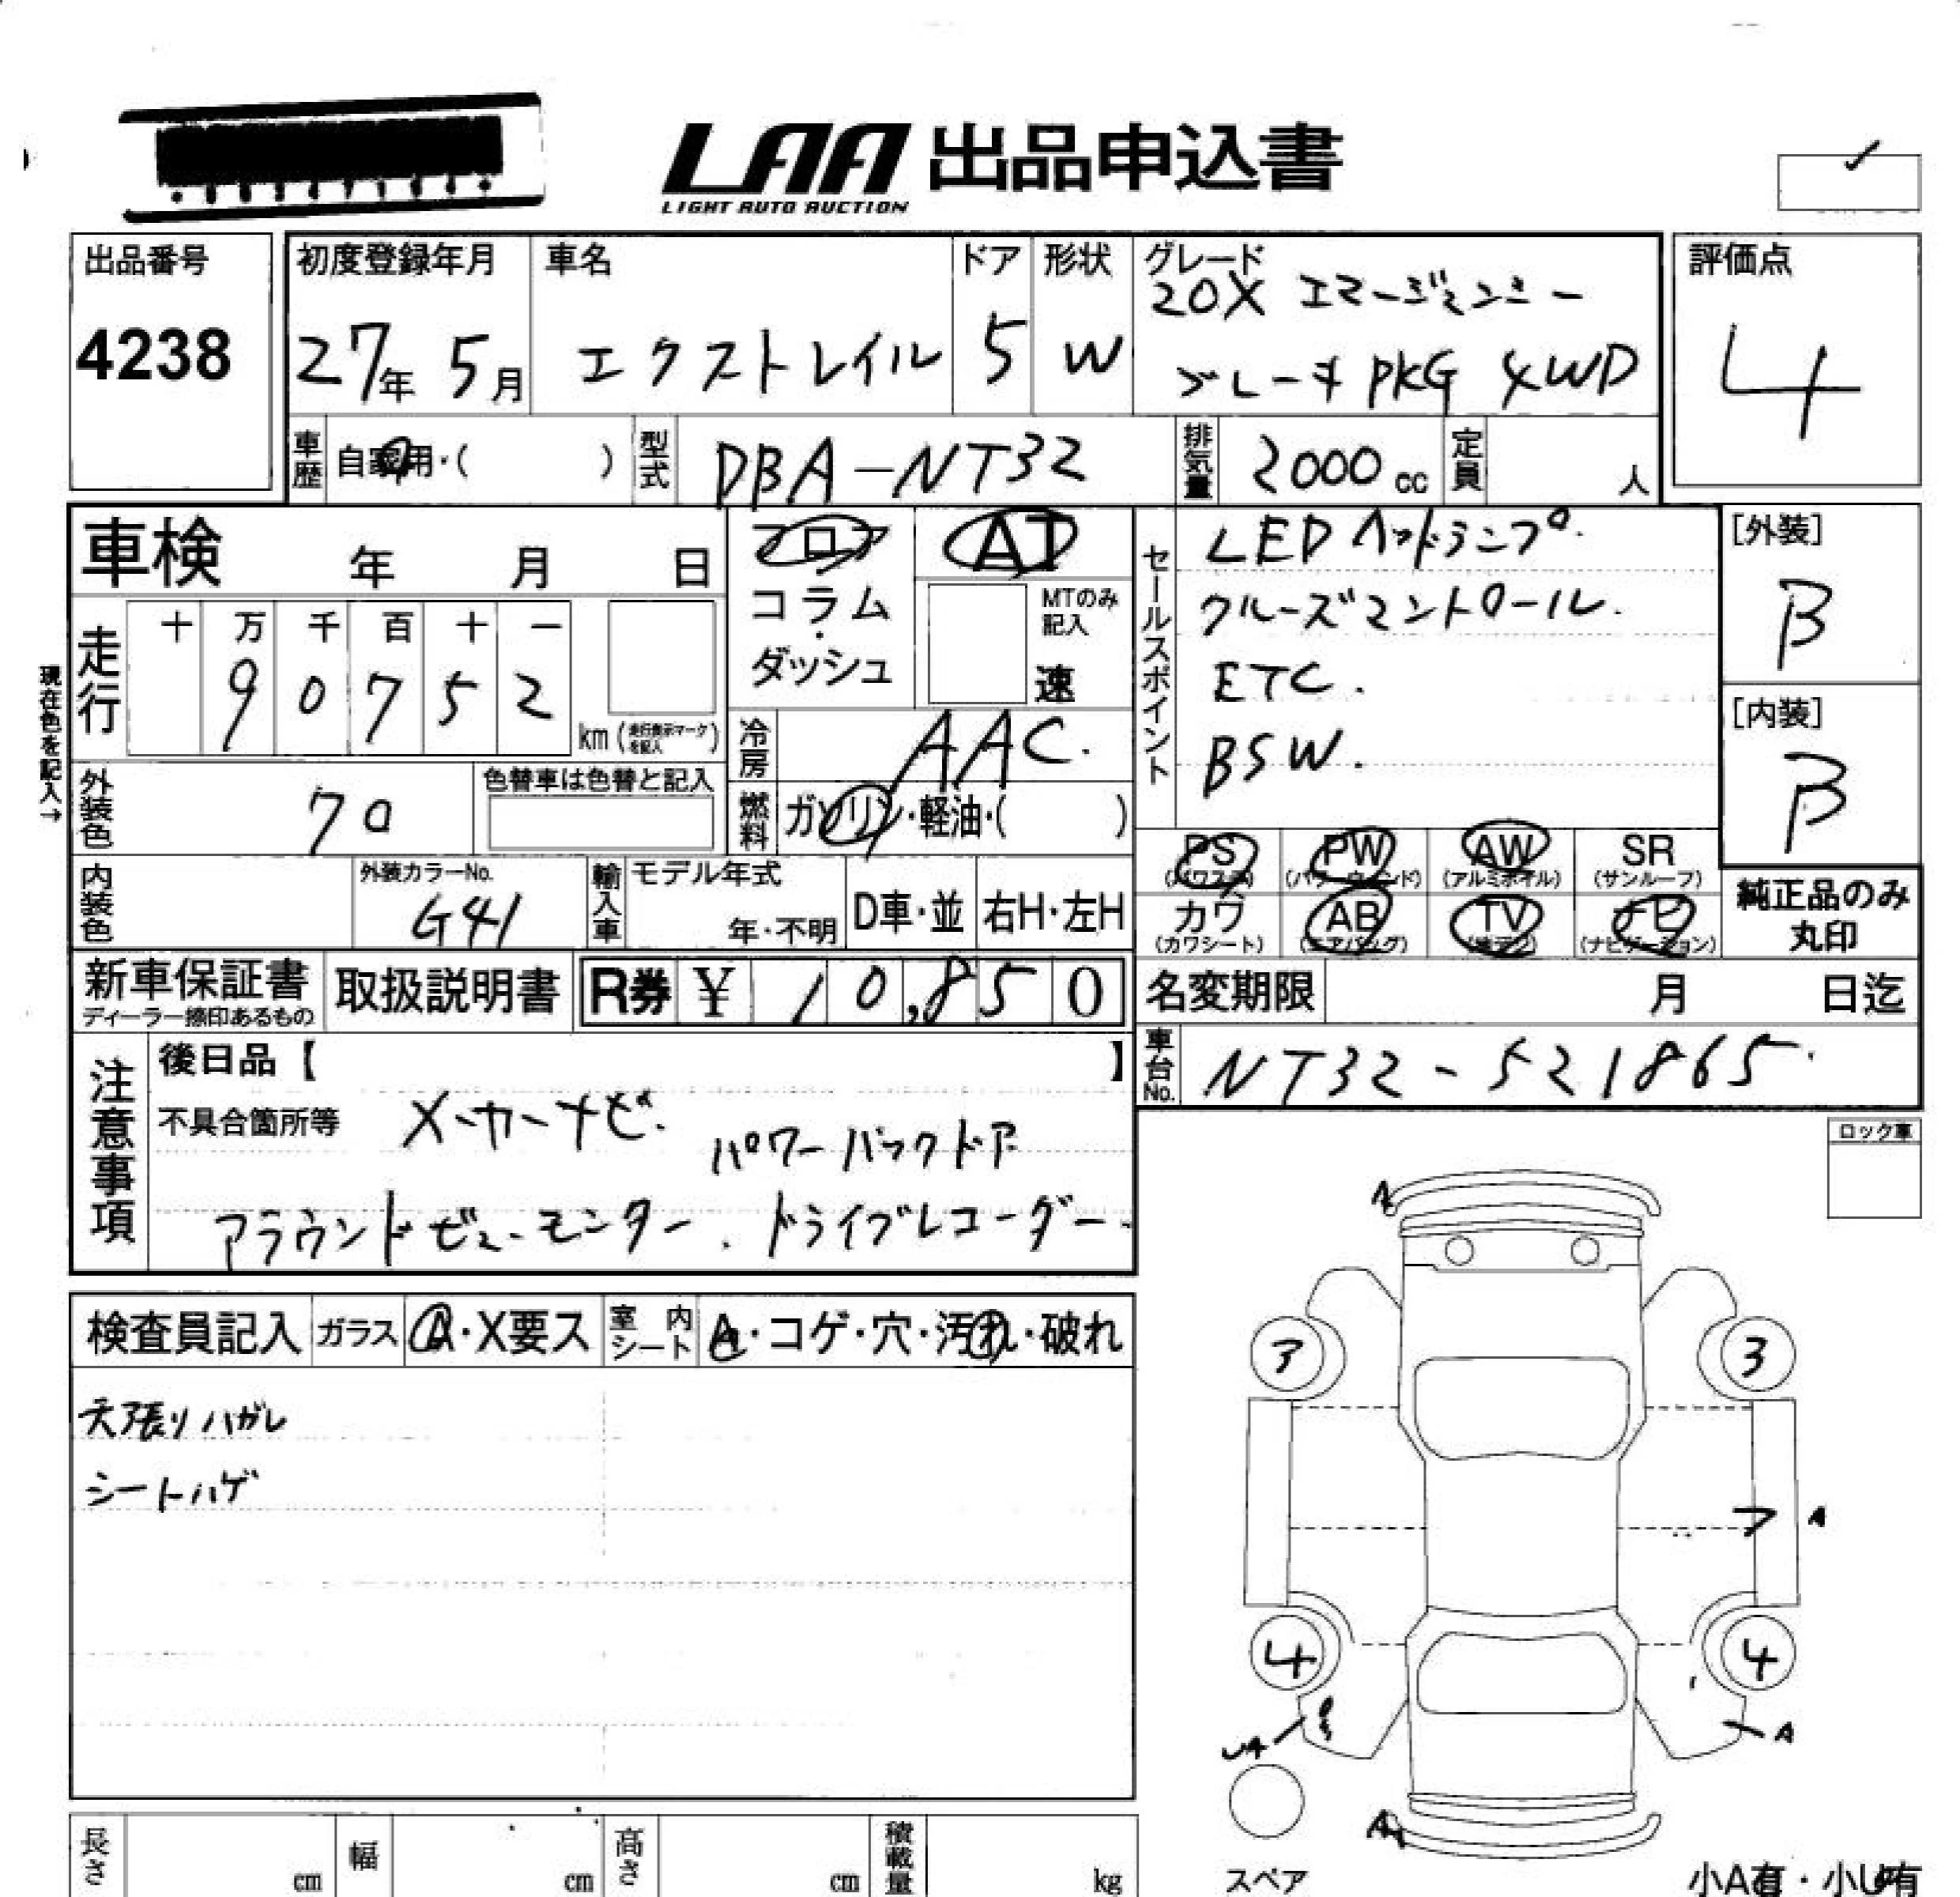 LAA 出品申込書
LIGHT AUTO AUCTION
出品番号
4238
初度登録年月
27年 5月
車名
エクストレイル
ドア
5
形状
W
グレード
20X エマージェンシー
ブレーキ PKG 4WD
評価点
4
車歴
自家用・( )
型式
DBA-NT32
排気量
2000 cc
定員
人
車検 年 月 日
フロア
コラム
・
ダッシュ
AT
MTのみ
記入
速
セールスポイント
LEDヘッドランプ.
クルーズコントロール.
ETC.
BSW.
[外装]
B
[内装]
B
現在色を記入→
走行
十 万 千 百 十 一
9 0 7 5 2
km(走行表示マークを記入)
冷房
AAC.
外装色
クロ
色替車は色替と記入
燃料
ガソリン・軽油・( )
PS
(パワステ)
PW
(パワーウィンド)
AW
(アルミホイル)
SR
(サンルーフ)
カワ
(カワシート)
AB
(エアバッグ)
TV
(地デジ)
ナビ
(ナビゲーション)
純正品のみ
丸印
内装色
外装カラーNo.
G41
輸入車
モデル年式
年・不明
D車・並
右H・左H
新車保証書
ディーラー捺印あるもの
取扱説明書
R券 ¥ 10,850
名変期限 月 日迄
車台No.
NT32-521865.
注意事項
後日品【 】
不具合箇所等 メーカーナビ. パワーバックドア
アラウンドビューモニター. ドライブレコーダー.
ロック車
検査員記入
ガラス
A・X要ス
室内シート
A・コゲ・穴・汚れ・破れ
天張りハガレ
シートハゲ
A
3
3
ア A
4
4
UA
A
A
スペア
長さ cm
幅 cm
高さ cm
積載量 kg
小A有・小U有